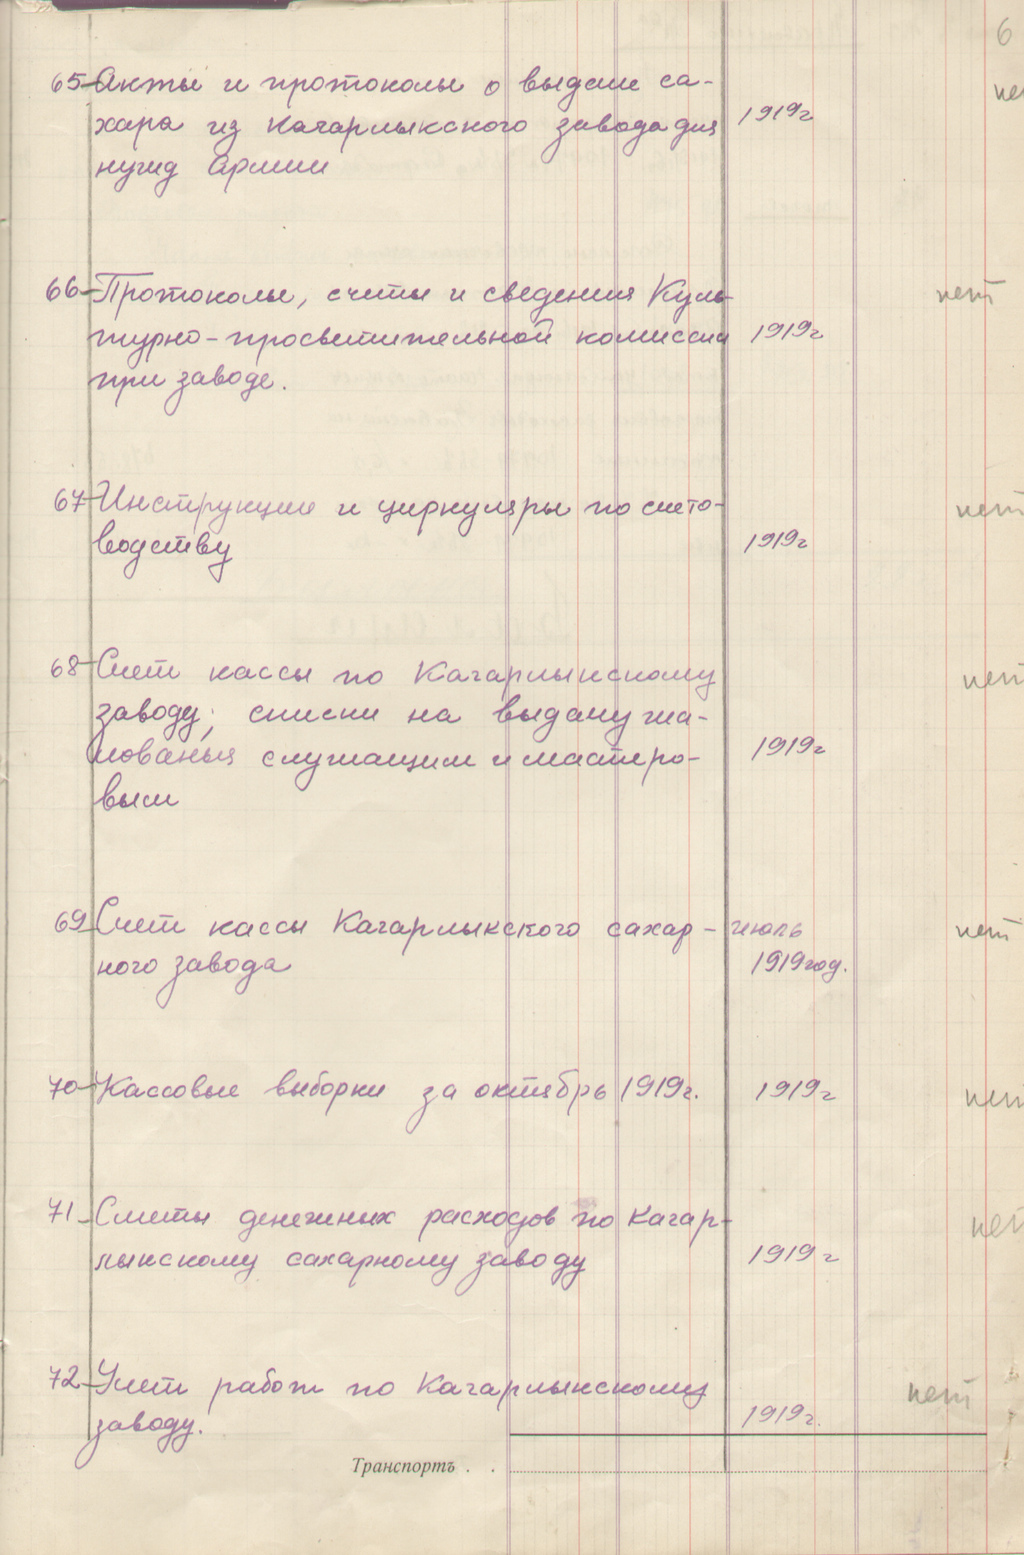 6
65 Акты и протоколы о выдаче са-
хара из Кагарлыкского завода для 1919г
нужд Армии
66 Протоколы, счеты и сведения Куль- нет
турно-просветительной комиссии 1919г
при заводе.
67 Инструкции и циркуляры по счето- нет
водству 1919г
68 Счет кассы по Кагарлыкскому нет
заводу; списки на выдачу жа-
лованья служащим и мастеро- 1919г
вым
69 Счет кассы Кагарлыкского сахар- июль нет
ного завода 1919год.
70 Кассовые выборки за октябрь 1919г. 1919г нет
71 Сметы денежных расходов по Кагар- нет
лыкскому сахарному заводу 1919г
72 Учет работ по Кагарлыкскому нет
заводу. 1919г.
Транспортъ . .